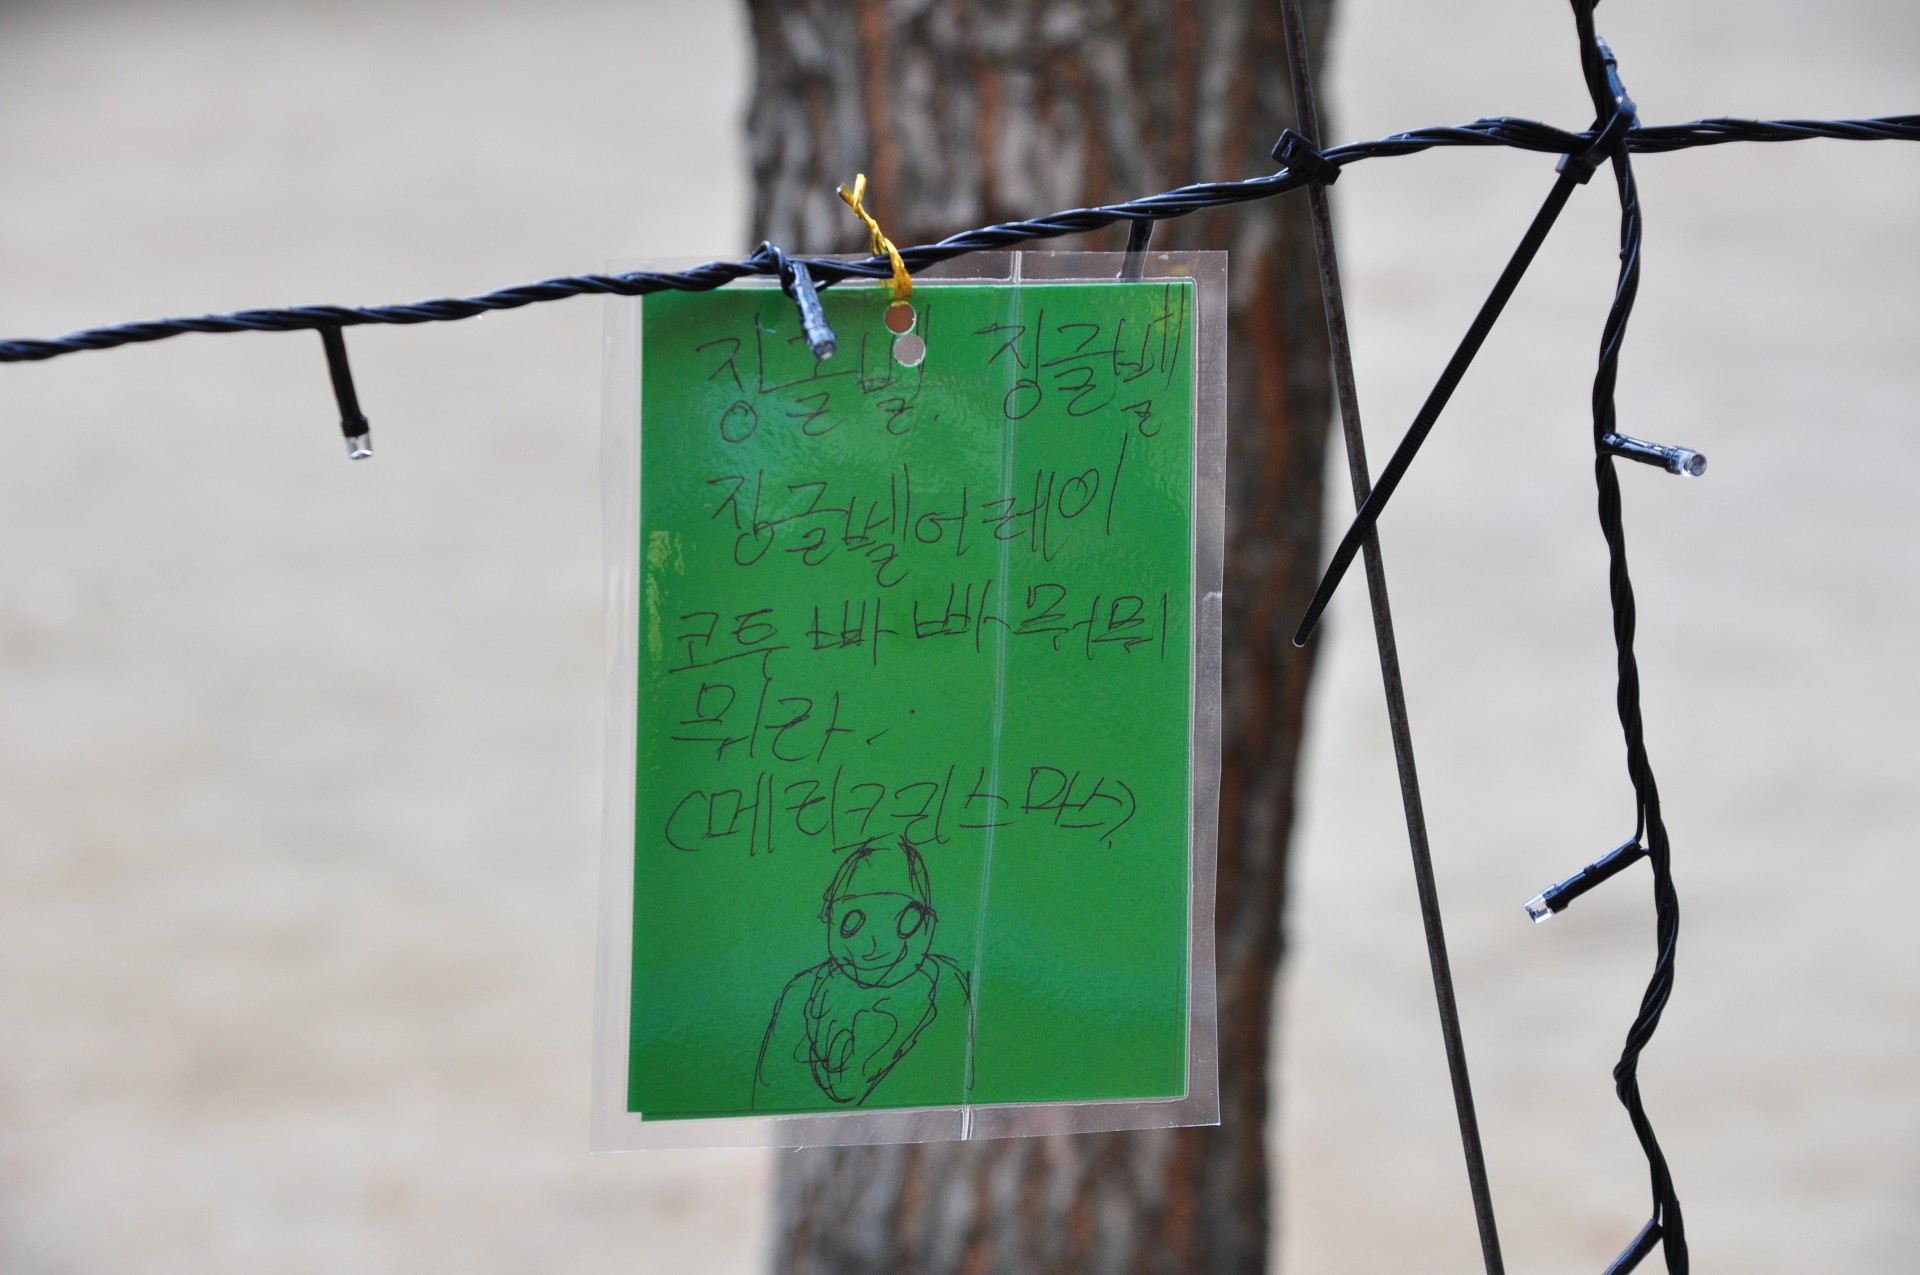 징글벨. 징글벨
징글벨어레이
코투 빠 빠 뭐뭐
뮈라.
(메리크리스마스)